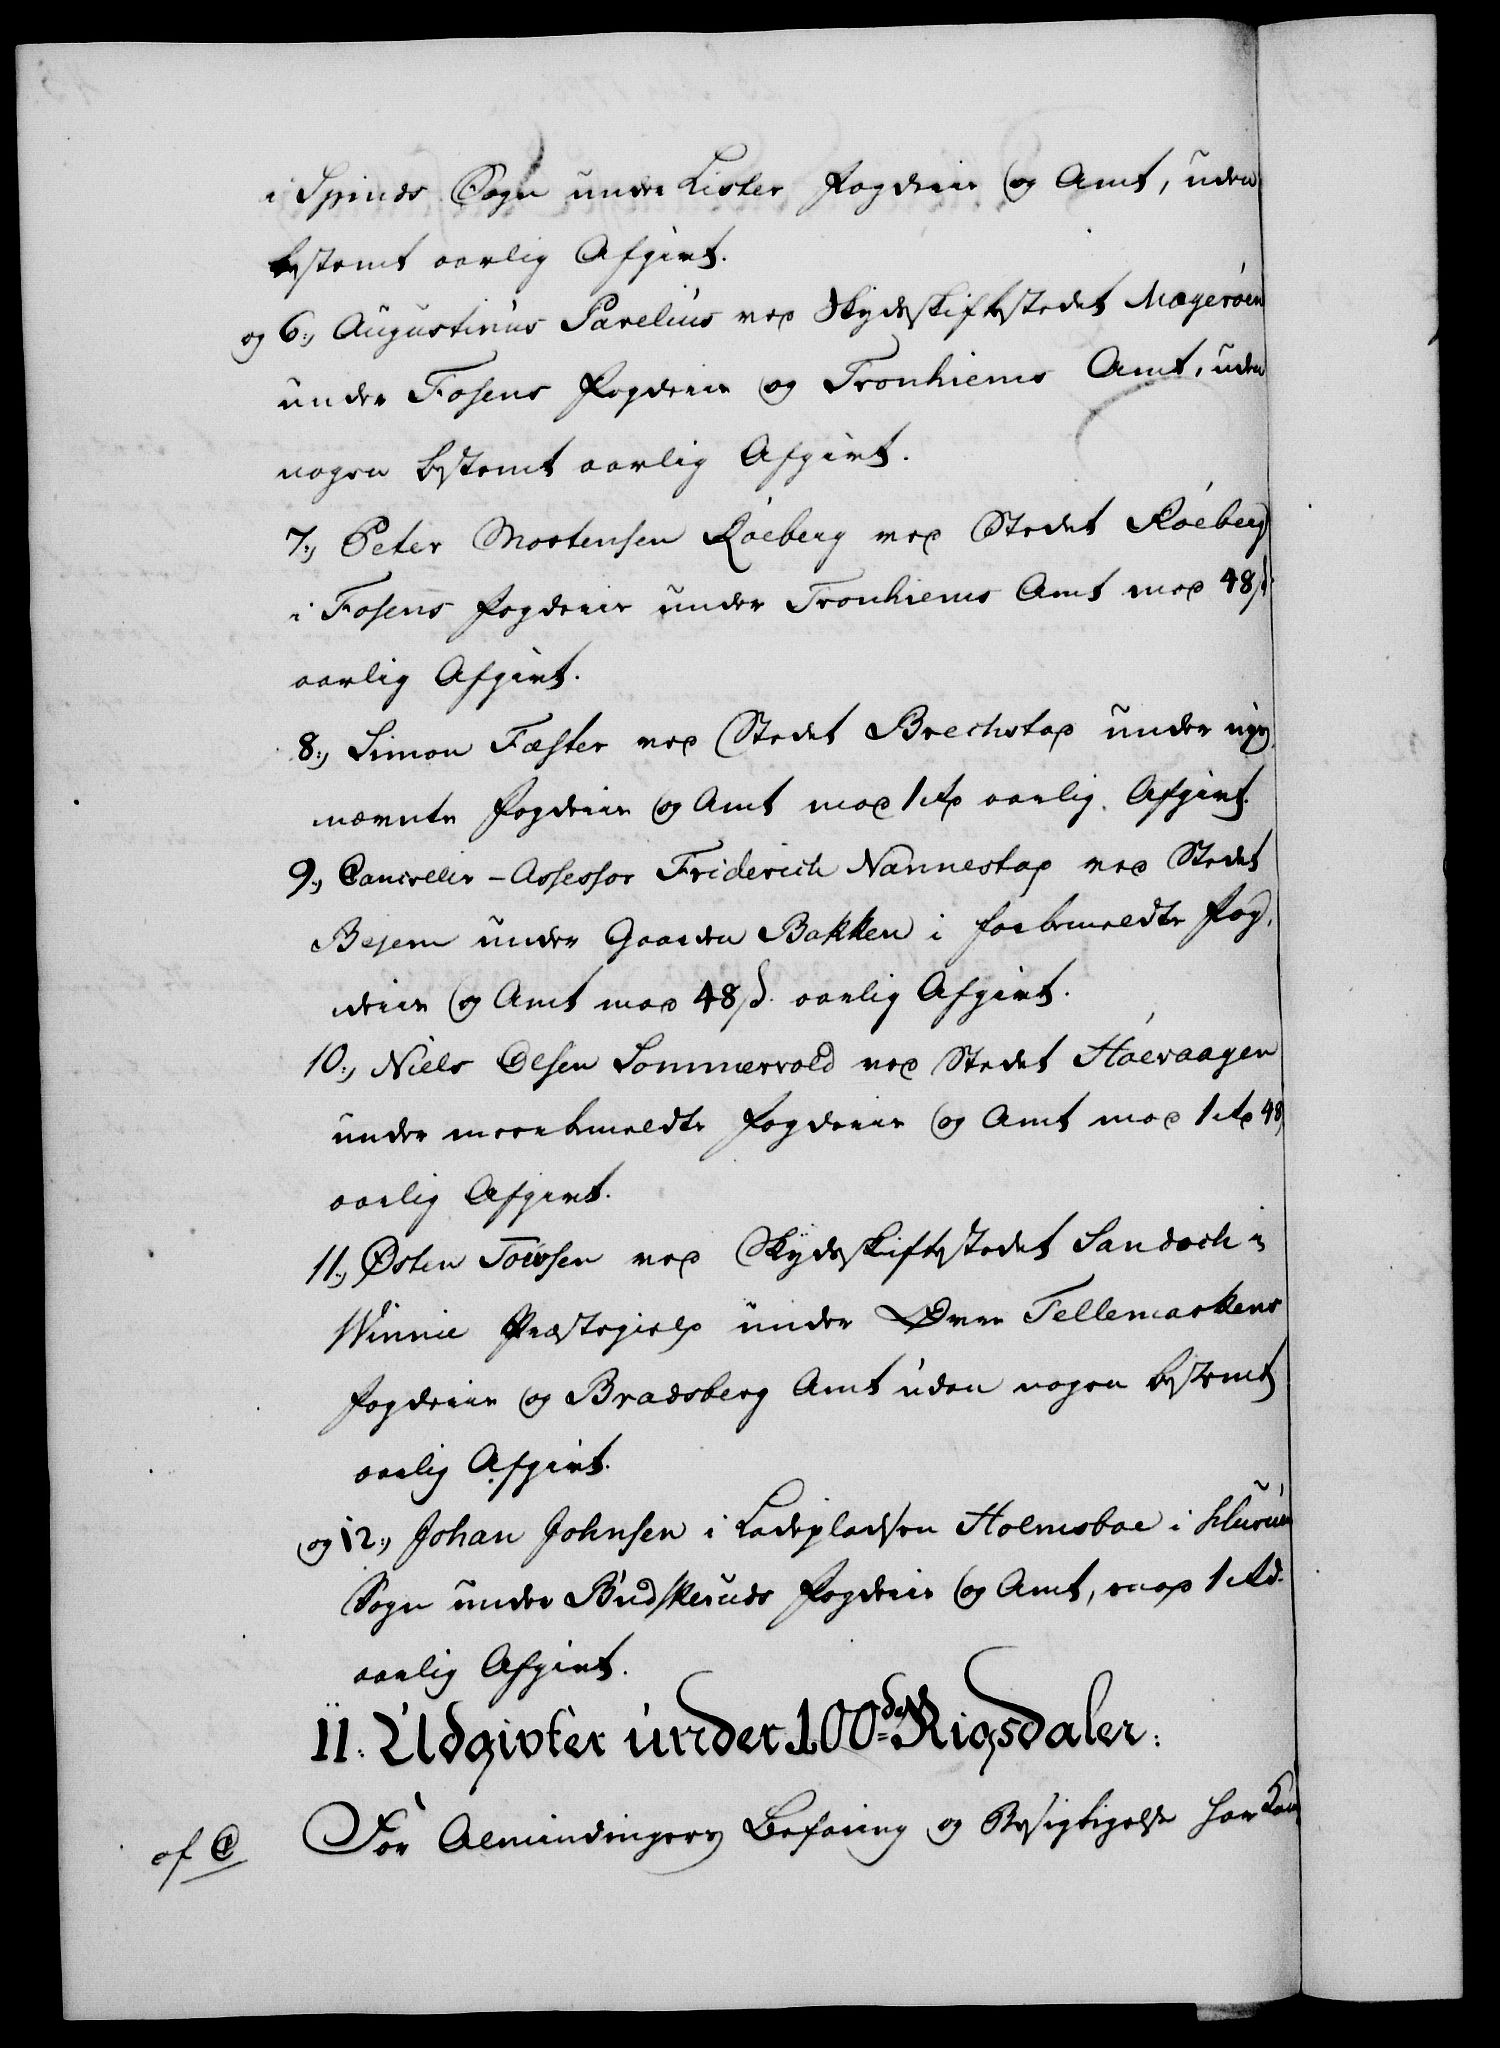 i Spinds Sogn under Lister Fogderie og Amt, uden
bestemt aarlig Afgivt.
og 6.) Augustinus Parelius ved Skydsskiftstedet Magerøen
under Fosens Fogderie og Tronhiems Amt, uden
nogen bestemt aarlig Afgivt.
7.) Peter Mortensen Röeberg ved Stedet Röeberg
i Fosens Fogderie under Tronhiems Amt mod 48 s
aarlig Afgivt.
8.) Simon Fæster ved Stedet Brechstad under nys
nævnte Fogderie og Amt mod 1 rd aarlig Afgivt.
9.) Cancellie-Assessor Friderich Nannestad ved Stedet
Bejern under Gaarden Bakken i forbemeldte Fog,
derie og Amt mod 48 s. aarlig Afgivt.
10.) Niels Olsen Sommervold ved Stedet Höevaagen
under meerbemeldte Fogderie og Amt mod 1 rd 48
aarlig Afgivt.
11.) Østen Tovsen ved Skydsskiftstedet Sandoch i
Winnie Præstegield under Øvre Tellemarkens
Fogderie og Bradsberg Amt uden nogen bestemt
aarlig Afgivt.
og 12.) Johan Johnsen i Ladepladsen Holmsboe i Hurum
Sogn under Budskeruds Fogderie og Amt, mod 1 Rd.
aarlig Afgivt.
II. Udgivter under 100de Rigsdaler.
af C For Almindingers Befaring og Besigtigelse har Kam